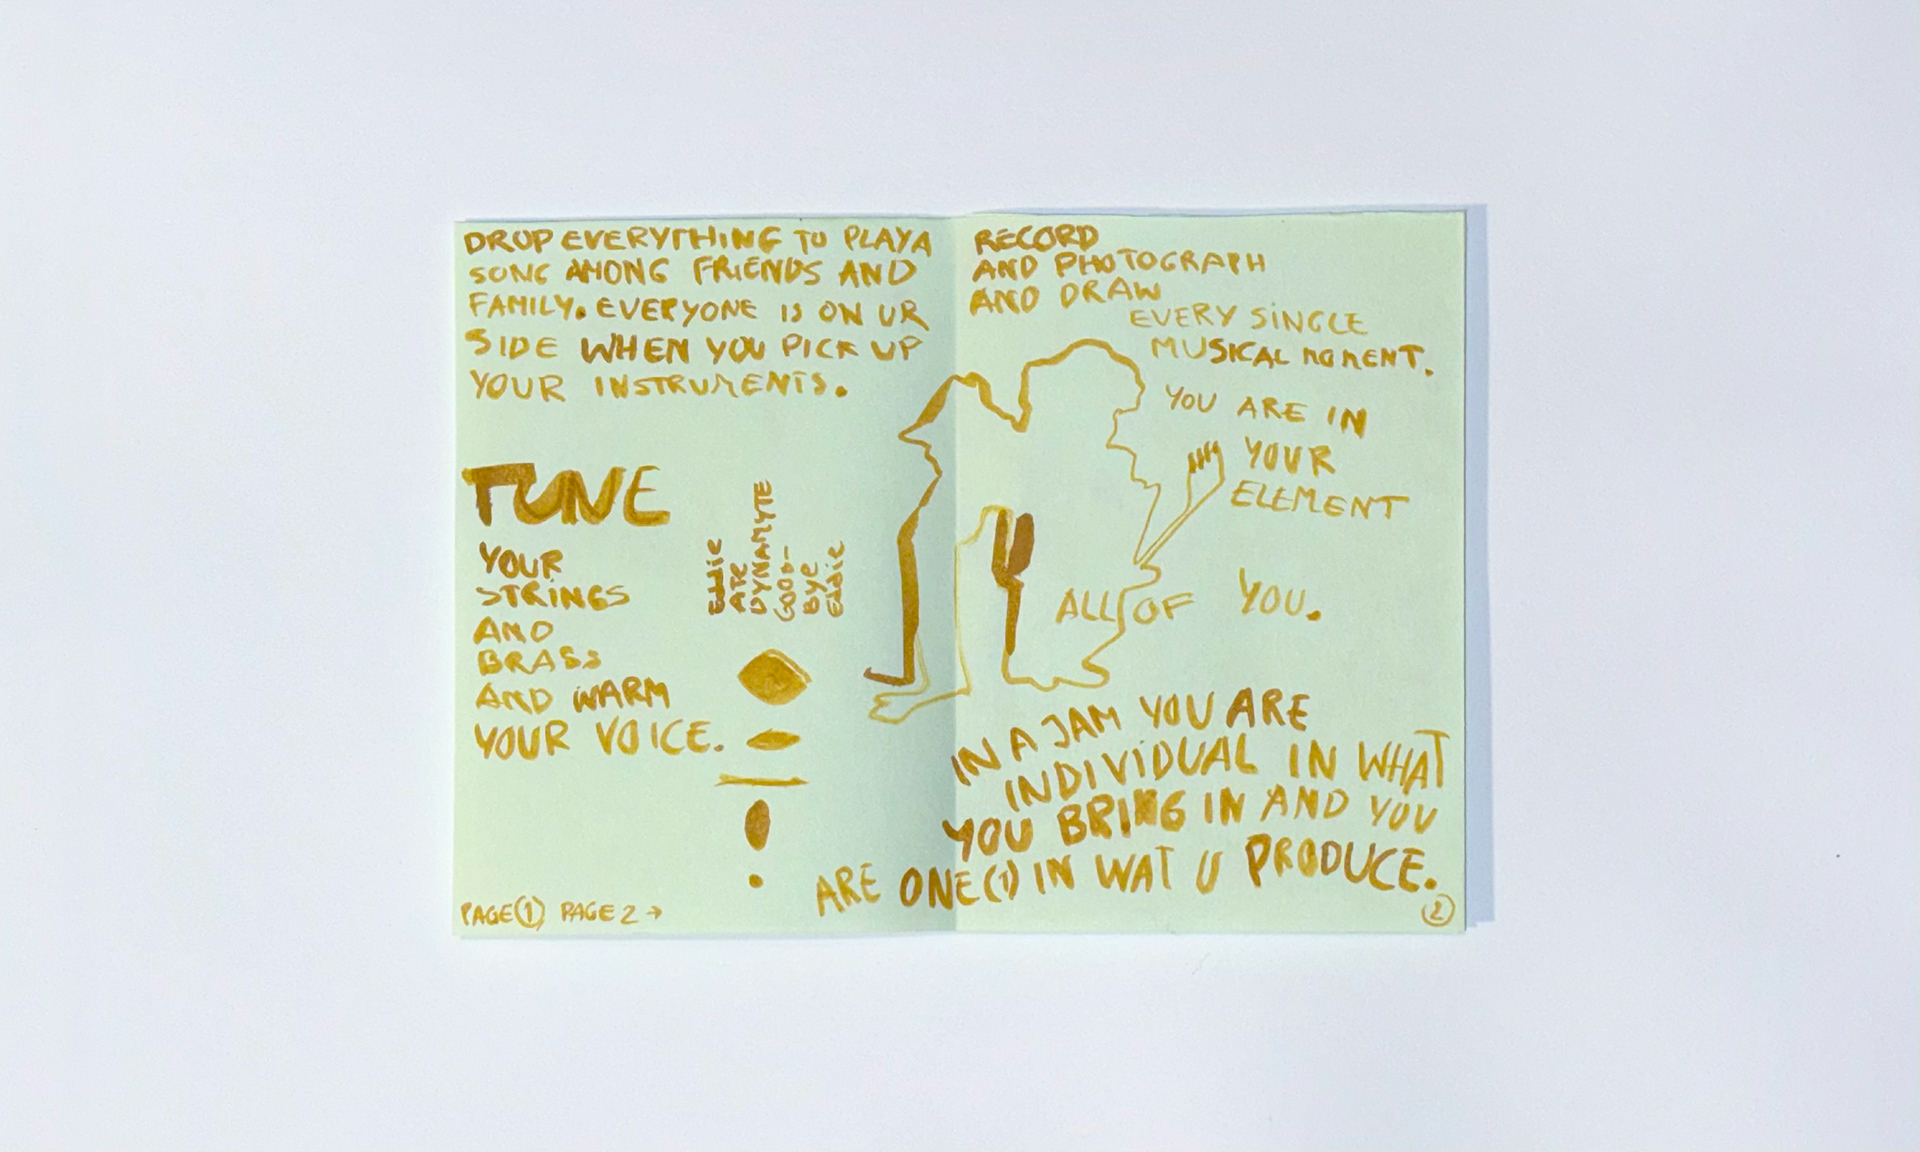 DROP EVERYTHING TO PLAY A
SONG AMONG FRIENDS AND
FAMILY. EVERYONE IS ON UR
SIDE WHEN YOU PICK UP
YOUR INSTRUMENTS.
TUNE
YOUR
STRINGS
AND
BRASS
AND WARM
YOUR VOICE.
Eddie
ATE
DYNAMYTE
GOOD-
BYE
Eddie
PAGE (1) PAGE 2 →
RECORD
AND PHOTOGRAPH
AND DRAW
EVERY SINGLE
MUSICAL MOMENT.
YOU ARE IN
YOUR
ELEMENT
ALL OF YOU.
IN A JAM YOU ARE
INDIVIDUAL IN WHAT
YOU BRING IN AND YOU
ARE ONE (1) IN WAT U PRODUCE.
2